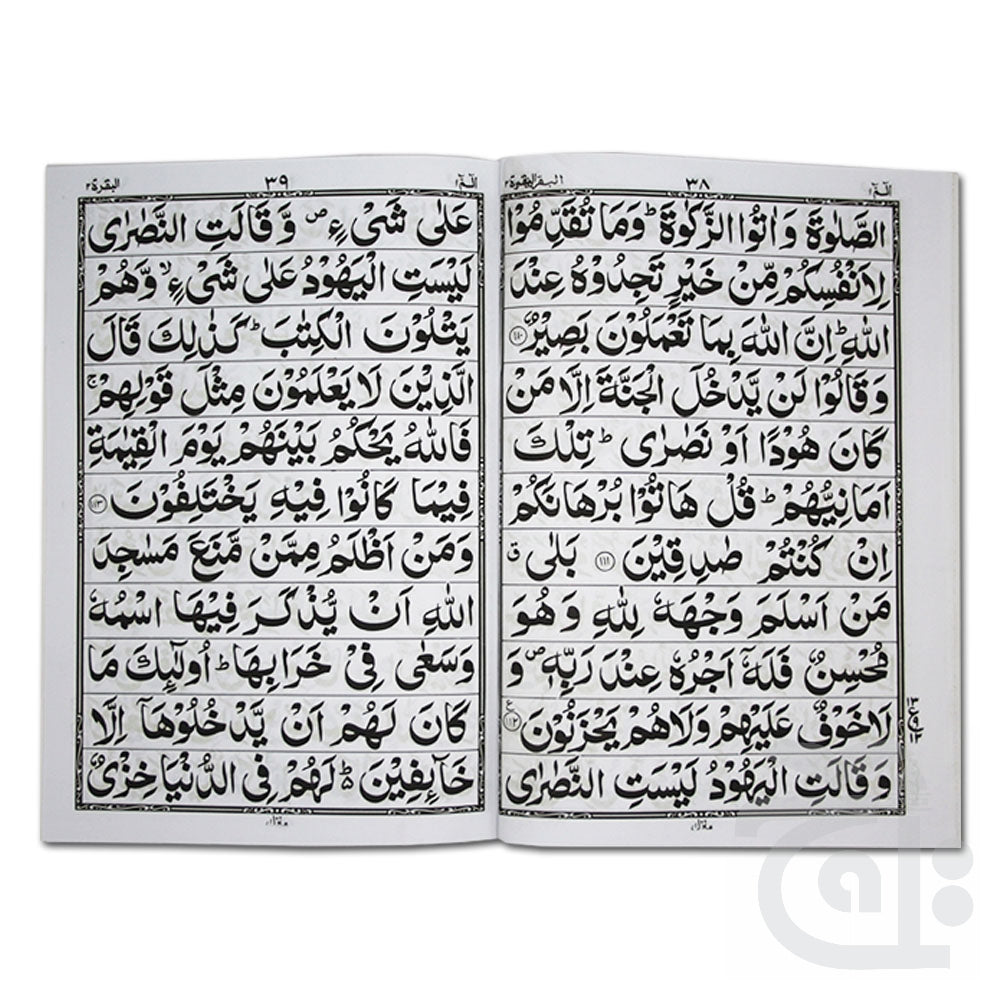 الٓمّٓ ١
٣٨
البقرة ٢
الصَّلٰوةَ وَاٰتُوا الزَّكٰوةَ ؕ وَمَا تُقَدِّمُوْا
لِاَنْفُسِكُمْ مِّنْ خَيْرٍ تَجِدُوْهُ عِنْدَ
اللّٰهِ ؕ اِنَّ اللّٰهَ بِمَا تَعْمَلُوْنَ بَصِيْرٌ ﴿١١٠﴾
وَقَالُوْا لَنْ يَّدْخُلَ الْجَنَّةَ اِلَّا مَنْ
كَانَ هُوْدًا اَوْ نَصٰرٰى ؕ تِلْكَ
اَمَانِيُّهُمْ ؕ قُلْ هَاتُوْا بُرْهَانَكُمْ
اِنْ كُنْتُمْ صٰدِقِيْنَ ﴿١١١﴾ بَلٰى ۗ
مَنْ اَسْلَمَ وَجْهَهٗ لِلّٰهِ وَهُوَ
مُحْسِنٌ فَلَهٗٓ اَجْرُهٗ عِنْدَ رَبِّهٖ ۖ وَ
لَا خَوْفٌ عَلَيْهِمْ وَلَا هُمْ يَحْزَنُوْنَ ﴿١١٢﴾
وَقَالَتِ الْيَهُوْدُ لَيْسَتِ النَّصٰرٰى
الٓمّٓ ١
٣٩
البقرة ٢
عَلٰى شَىْءٍ ۖ وَّقَالَتِ النَّصٰرٰى
لَيْسَتِ الْيَهُوْدُ عَلٰى شَىْءٍ ۙ وَّهُمْ
يَتْلُوْنَ الْكِتٰبَ ؕ كَذٰلِكَ قَالَ
الَّذِيْنَ لَا يَعْلَمُوْنَ مِثْلَ قَوْلِهِمْ ۚ
فَاللّٰهُ يَحْكُمُ بَيْنَهُمْ يَوْمَ الْقِيٰمَةِ
فِيْمَا كَانُوْا فِيْهِ يَخْتَلِفُوْنَ ﴿١١٣﴾
وَمَنْ اَظْلَمُ مِمَّنْ مَّنَعَ مَسٰجِدَ
اللّٰهِ اَنْ يُّذْكَرَ فِيْهَا اسْمُهٗ
وَسَعٰى فِىْ خَرَابِهَا ؕ اُولٰٓئِكَ مَا
كَانَ لَهُمْ اَنْ يَّدْخُلُوْهَآ اِلَّا
خَآئِفِيْنَ ؕ لَهُمْ فِى الدُّنْيَا خِزْىٌ